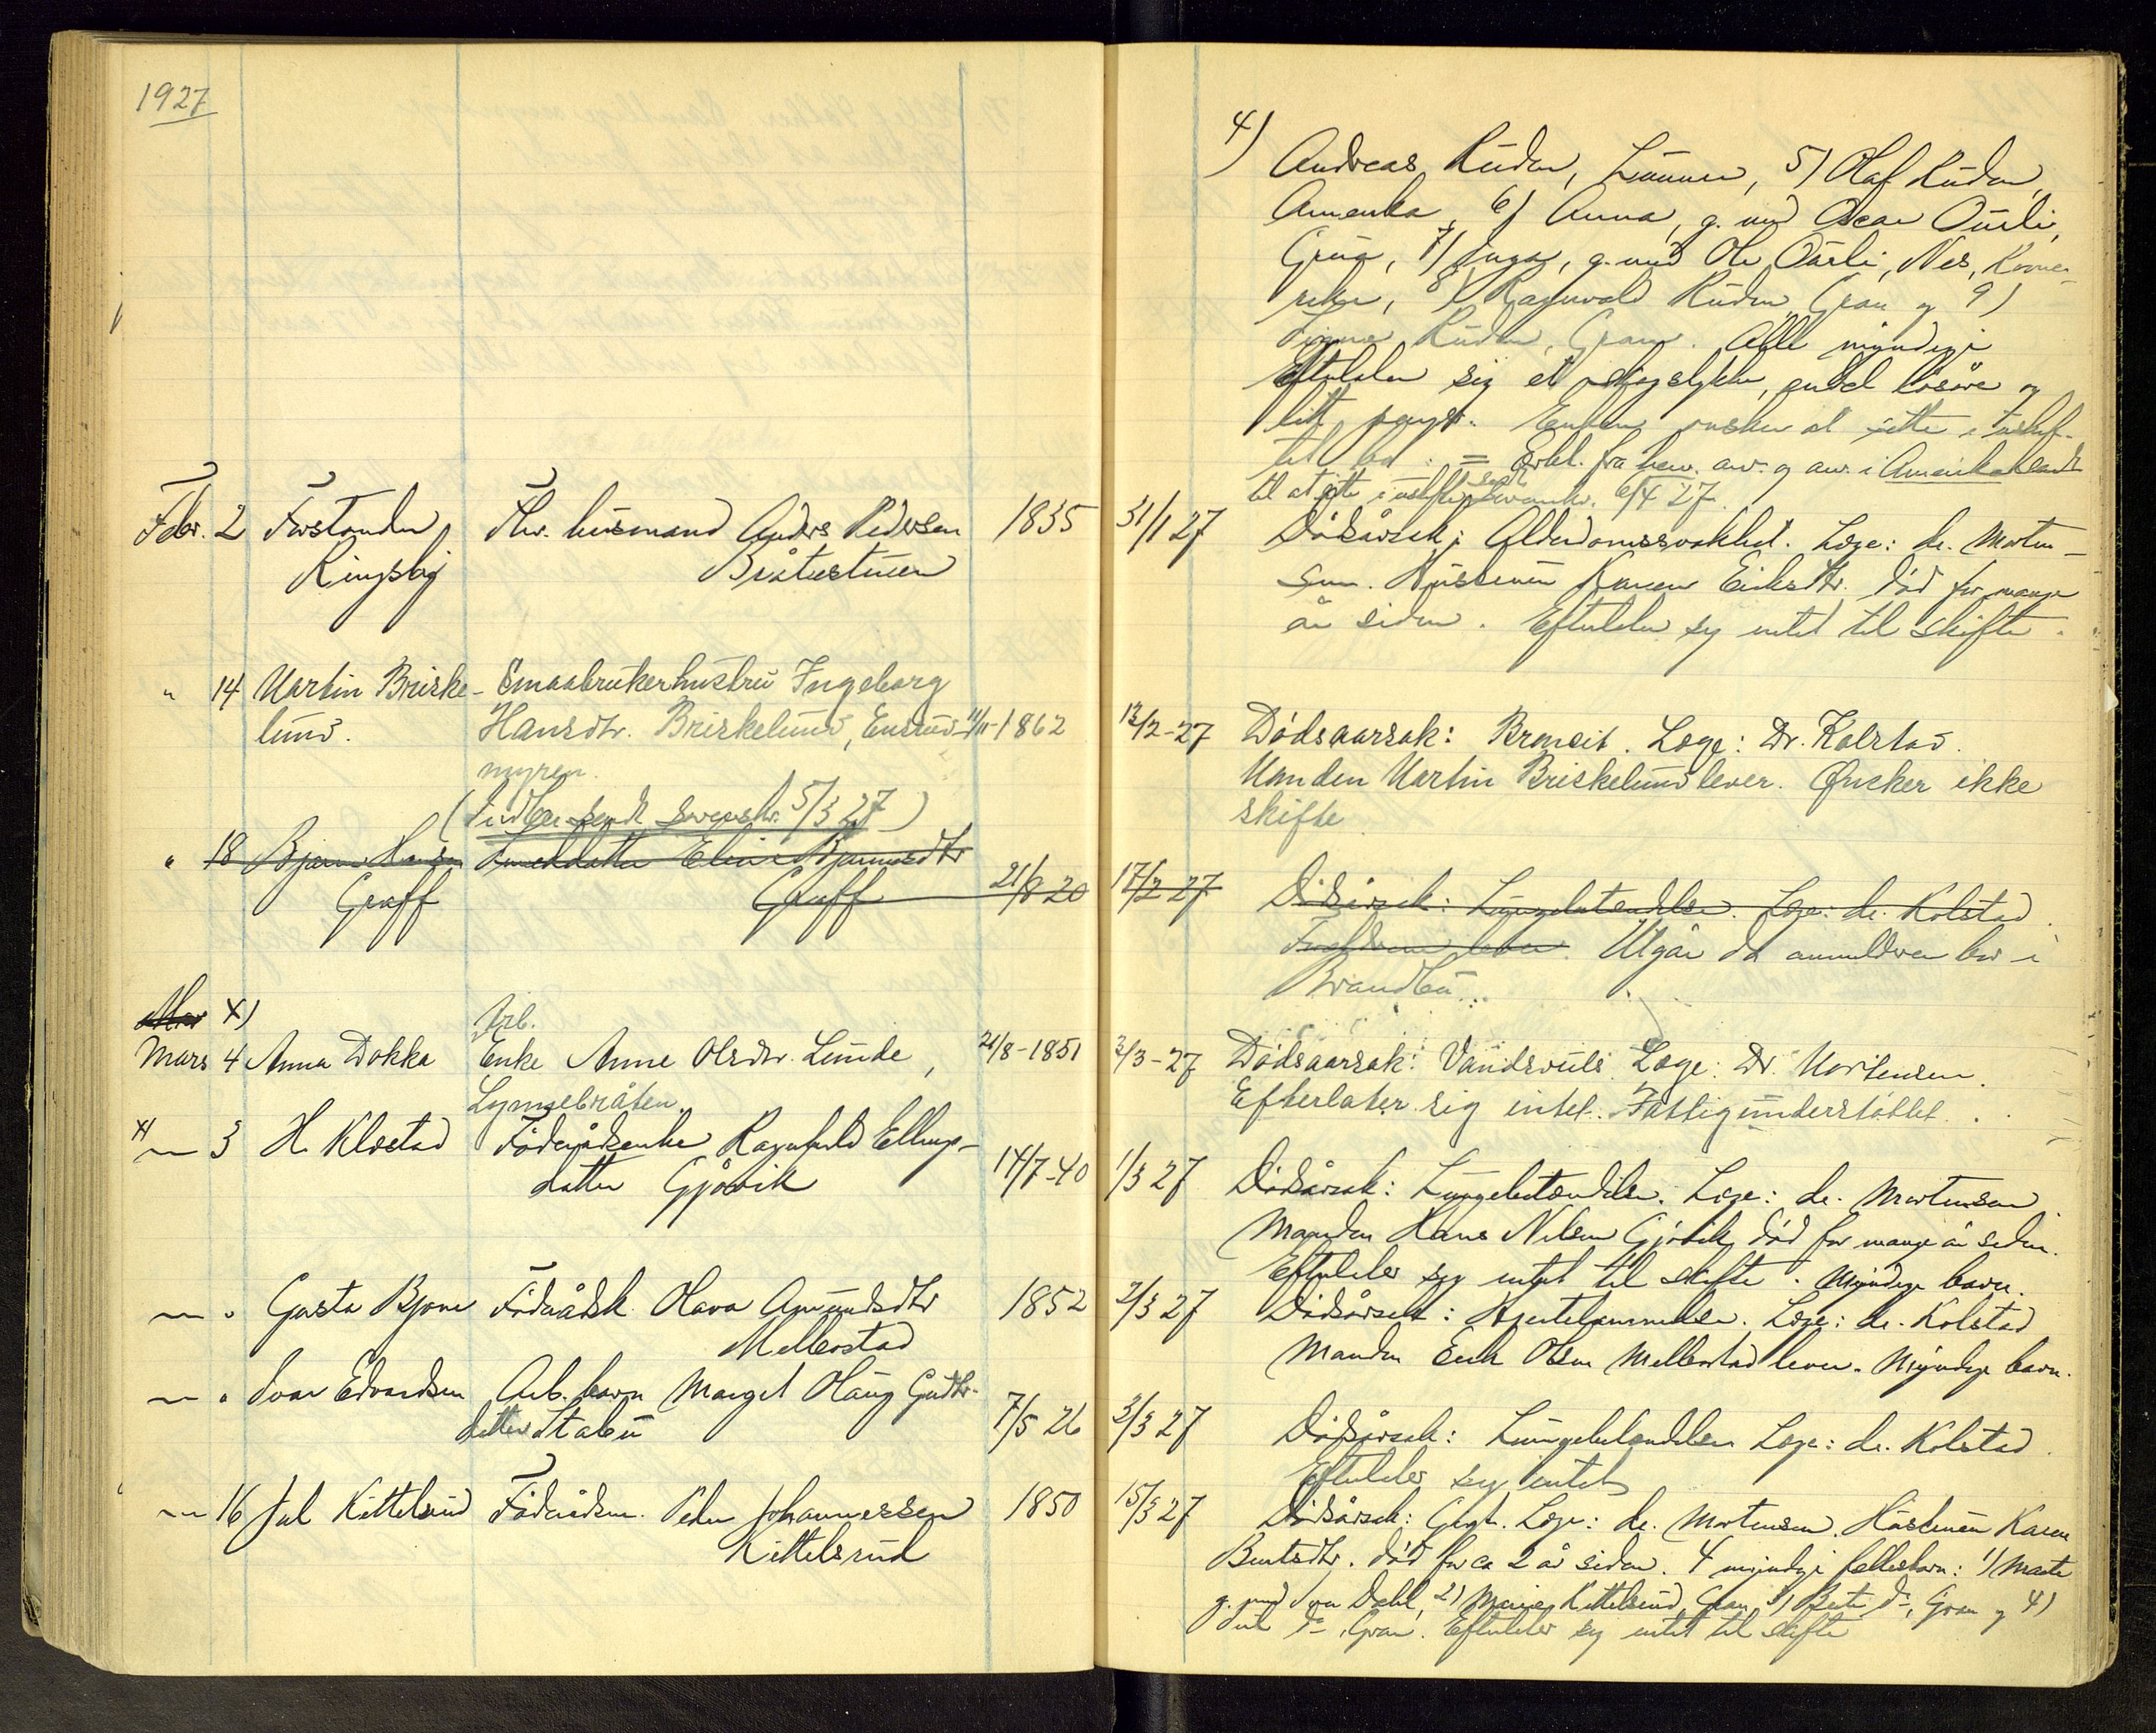 1927
4)
Andreas Ruden, Lunner, 5) Olaf Ruden,
Amerika, 6) Anna, g. med Oscar Ourli,
Grua, 7) Inga, g. med Ole Ourli, Nes, Rome-
rike, 8) Ragnvald Ruden, Gran og 9)
Signe Ruden, Gran. Alle myndige
Efterlater sig et skogstykke, endel løsøre og
litt penger. Enken ønsker at sitte i uskif-
tet bo. = Erkl. fra hev. arv. og arv. i Amerika sendt
til at sitte i uskifte sendt sorenskr. 6/4 27.
Febr. 2 Forstander Fhv. husmand Anders Pedersen 1835 31/1 27 Dødsårsak: Alderdomssvakhet. Læge: dr. Morten-
Ringsby Bråtestuen sen. Hustruen Karen Eriksdtr. død for mange
år siden. Efterlater sig intet til skifte.
" 14 Martin Briske- Smaabrukerhustru Ingeborg
lund. Hansdtr. Briskelund, Enrud- 11/11-1862 13/2-27 Dødsaarsak: Broncit. Læge: Dr. Kolstad.
myren. Manden Martin Briskelund lever. Ønsker ikke
skifte
( sendt sorenskr. 5/3 27)
" 18 Bjarne Hansen datter Eline Bjarnesdtr
Graff Graff 21/8 20 17/2 27 Dødsårsak: Lungebetændelse. Læge: dr. Kolstad.
Forældrene lever. Utgår da anmelderen bor i
Brandbu
Mar x)
Arb.
Mars 4 Anna Dokka Enke Anne Olsdtr. Lunde, 21/8-1851 3/3-27 Dødsaarsak: Vandsott. Læge: Dr. Mortensen.
Lyngebråten. Efterlater sig intet. Fattigunderstøttet.
x) — 3 H. Klæstad Føderådsenke Ragnhild Ellings-
datter Gjøvik 14/7-40 1/3 27 Dødsårsak: Lungebetændelse. Læge: dr. Mortensen.
Manden Hans Nilsen Gjøvik død for mange år siden.
Efterlater sig intet til skifte. Myndige barn.
— " Gusta Bjone Føderådsk. Olava Amundsdtr 1852 2/3 27 Dødsårsak: Hjertelammelse. Læge: dr. Kolstad
Mellerstad Manden Erik Olsen Mellerstad lever. Myndige barn.
— " Ivar Edvardsen Arb. barn Margit Olaug Gudbr.
datter Stabu 7/5 26 3/3 27 Dødsårsak: Lungebetændelse. Læge: dr. Kolstad.
Efterlater sig intet
— 16 Jul Kittelsrud Føderådsm. Peder Johannessen 1850 15/3 27 Dødsårsak: Gigt. Læge: dr. Mortensen. Hustruen Karen
Kittelsrud Berntsdtr. død for ca 2 år siden. 4 myndige fællesbarn: 1) Marte
g. med Iver Dahl, 2) Marie Kittelsrud, Gran, 3) Berte do, Gran og 4)
Jul do, Gran. Efterlater sig intet til skifte